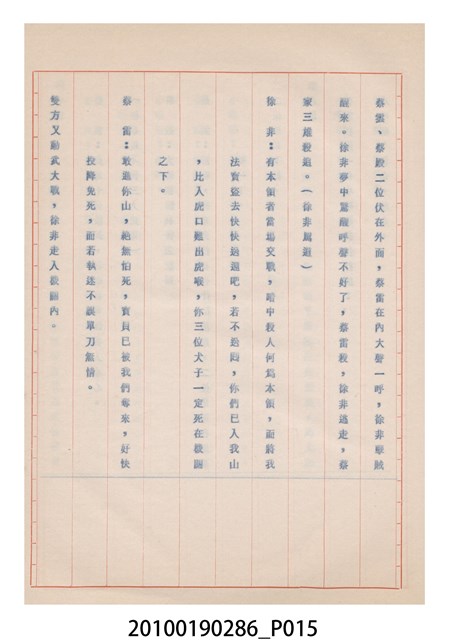 蔡雲、蔡殿二位伏在外面，蔡雷在內大聲一呼，徐非擊賊
醒來。徐非夢中驚醒呼聲不好了，蔡雷殺，徐非逃走，蔡
家三雄殺追。（徐非罵迴）
徐　非：有本領者當場交戰，暗中殺人何為本領，面將我
法寶盜去快快迴避吧，若不迴歸，你們已入我山
，比入虎口難出虎喉，你三位犬子一定死在
之下。
蔡　雷：敢進你山，絕無怕死，寶貝已被我們奪來，好快
投降免死，而若執迷不誤單刀無情。
雙方又動武大戰，徐非走入內。
20100190286_P015